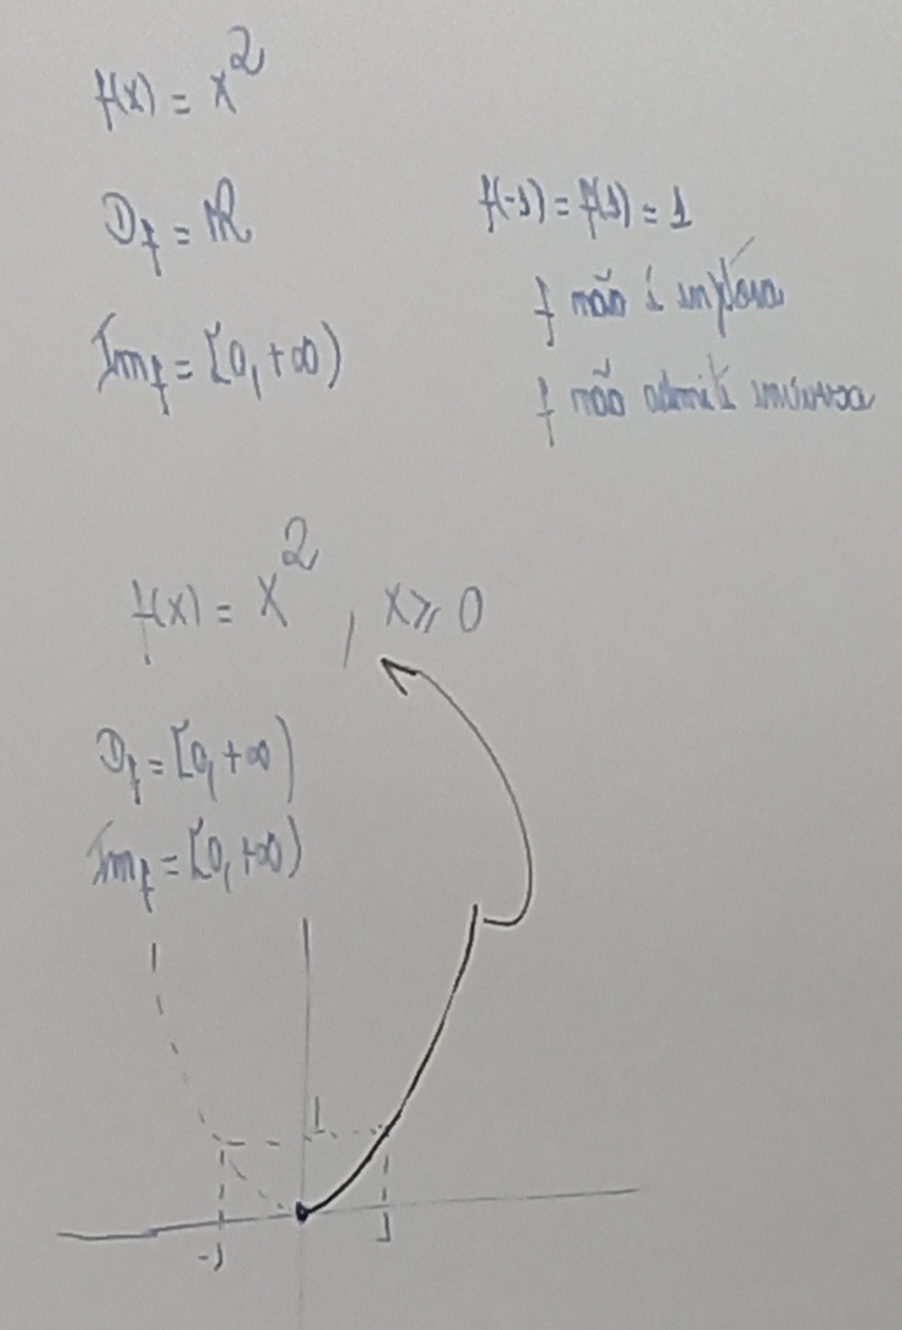 f(x) = x²
D_f = ℝ
Im_f = [0, +∞)
f(-1) = f(1) = 1
f não é injetora
f não admite inversa
f(x) = x² , x ⩾ 0
D_f = [0, +∞)
Im_f = [0, +∞)
1
-1
1